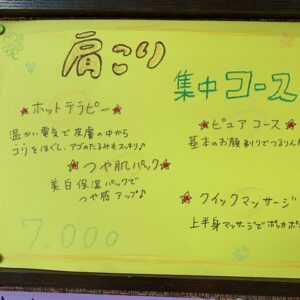 肩こり
集中コース
★ホットテラピー★
温かい電気で皮膚の中から
コリをほぐし、アゴのたるみもスッキリ♪
★つや肌パック★
美白保湿パックで
つや感アップ♪
★ピュアコース★
基本のお顔剃りでつるりん
★クイックマッサージ
上半身マッサージでポカポ
7.000